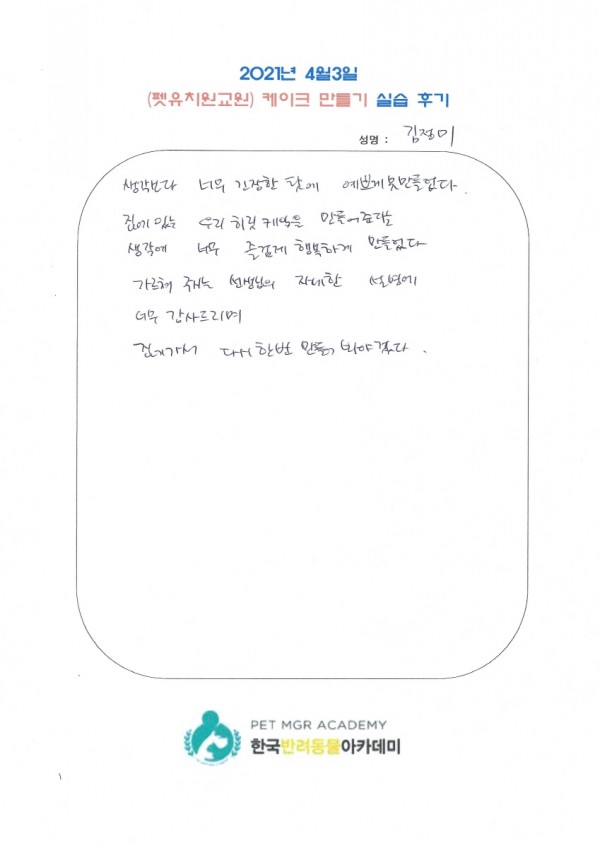 2021년 4월3일
(펫유치원교원) 케이크 만들기 실습 후기
성명 : 김정미
생각보다 너무 긴장한 탓에 예쁘게 못만들었다.
집에 있는 우리 히릿 케익을 만들어준다는
생각에 너무 즐겁게 행복하게 만들었다
가르쳐 주시는 선생님의 자세한 설명에
너무 감사드리며
집에가서 다시 한번 만들어 봐야겠다.
PET MGR ACADEMY
한국반려동물아카데미